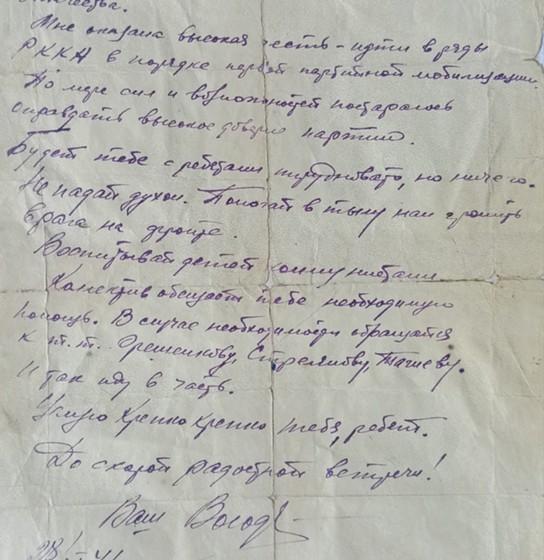 Мне оказана высокая честь – идти в ряды
РККА в порядке первой партийной мобилизации.
По мере сил и возможностей постараюсь
оправдать высокое доверие партии.
Будет тебе с ребятами трудновато, но ничего.
Не падай духом. Помогай в тылу нам громить
врага на фронте.
Воспитывай детей коммунистами
Колектив обещает тебе необходимую
помощь. В случае необходимости обращайся
к т.т. Стрелкову,
Итак иду в часть.
Целую Крепко Крепко тебя, ребят.
До скорой радостной встречи!
Ваш Володя